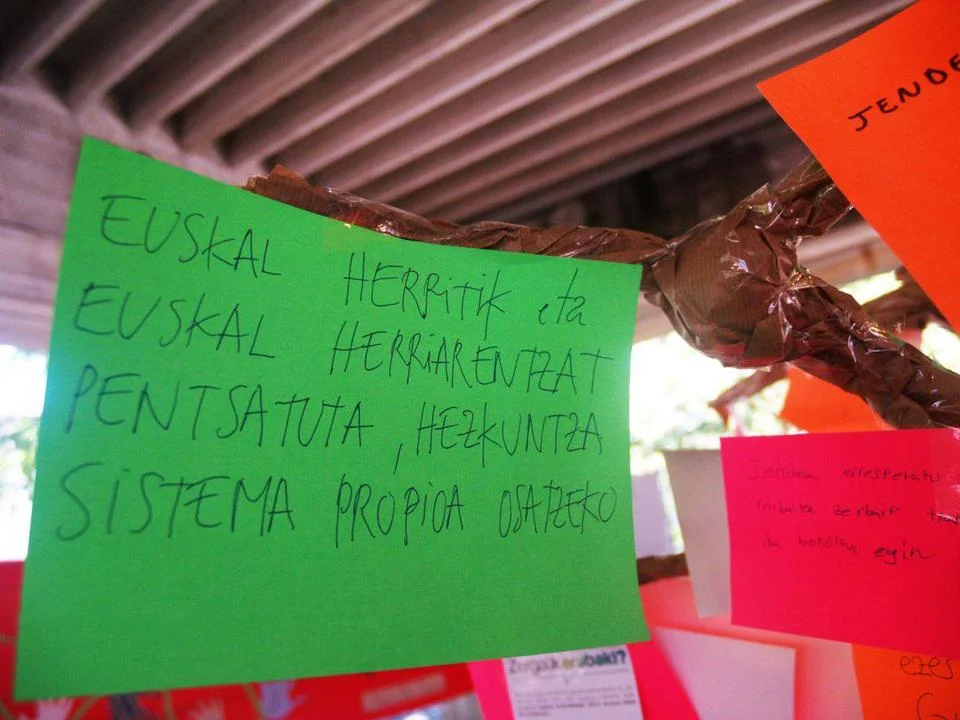 EUSKAL HERRITIK eta
EUSKAL HERRIARENTZAT
PENTSATUTA, HEZKUNTZA
SISTEMA PROPIOA OSATZEKO
JENDE
Jendea errespetatu
zerbait
da borobila egin
Zergatik erabaki?
ezes